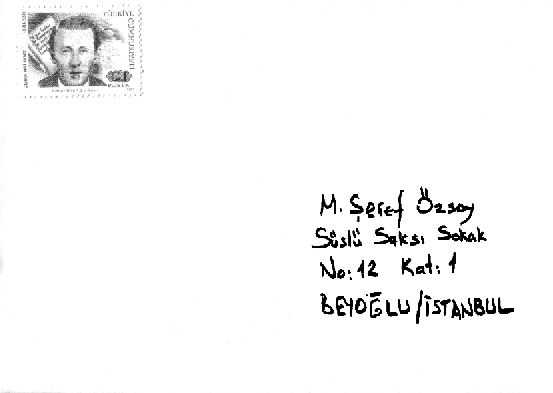 TÜRKİYE
CUMHURİYETİ
M. Şeref Özsoy
Süslü Saksı Sokak
No: 12 Kat: 1
BEYOĞLU/İSTANBUL